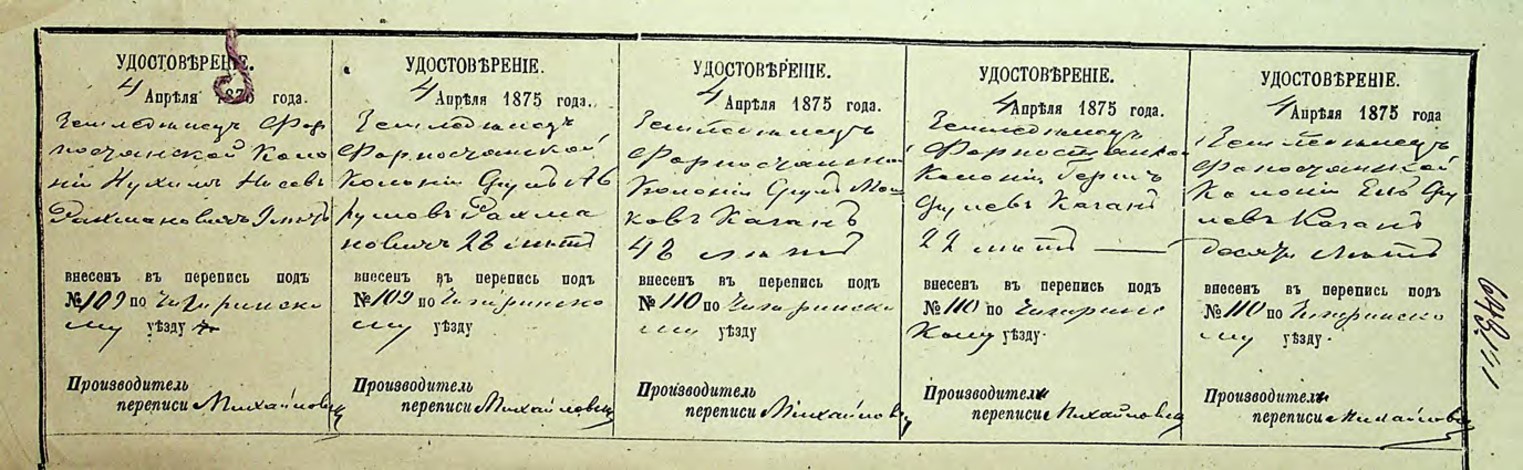 УДОСТОВѢРЕНІЕ.
4 Апрѣля 1875 года.
Земледѣлецъ Фор
постянской Коло
ніи Нухимъ Носевъ
Рахмановичъ
внесенъ въ перепись подъ
№ 109 по Чигиринско
му уѣзду
Производитель
переписи Михайловскій
УДОСТОВѢРЕНІЕ.
4 Апрѣля 1875 года.
Земледѣлецъ
Форпостянской
Колоніи Сруль Аб
румовъ Рахма
новичъ 28 лѣтъ
внесенъ въ перепись подъ
№ 109 по Чигиринско
му уѣзду
Производитель
переписи Михайловскій
УДОСТОВѢРЕНІЕ.
4 Апрѣля 1875 года.
Земледѣлецъ
Форпостянской
Колоніи Сруль Мош
ковъ Каганъ
48 лѣтъ
внесенъ въ перепись подъ
№ 110 по Чигиринско
му уѣзду
Производитель
переписи Михайловскій
УДОСТОВѢРЕНІЕ.
4 Апрѣля 1875 года.
Земледѣлецъ
Форпостянской
Колоніи Гершъ
Срулевъ Каганъ
22 лѣтъ
внесенъ въ перепись подъ
№ 110 по Чигирин
кому уѣзду.
Производитель
переписи Михайловскій
УДОСТОВѢРЕНІЕ.
4 Апрѣля 1875 года
Земледѣлецъ
Форпостянской
Колоніи Сру
левъ Каганъ
десять лѣтъ
внесенъ въ перепись подъ
№ 110 по Чигиринско
му уѣзду.
Производитель
переписи Михайловскій